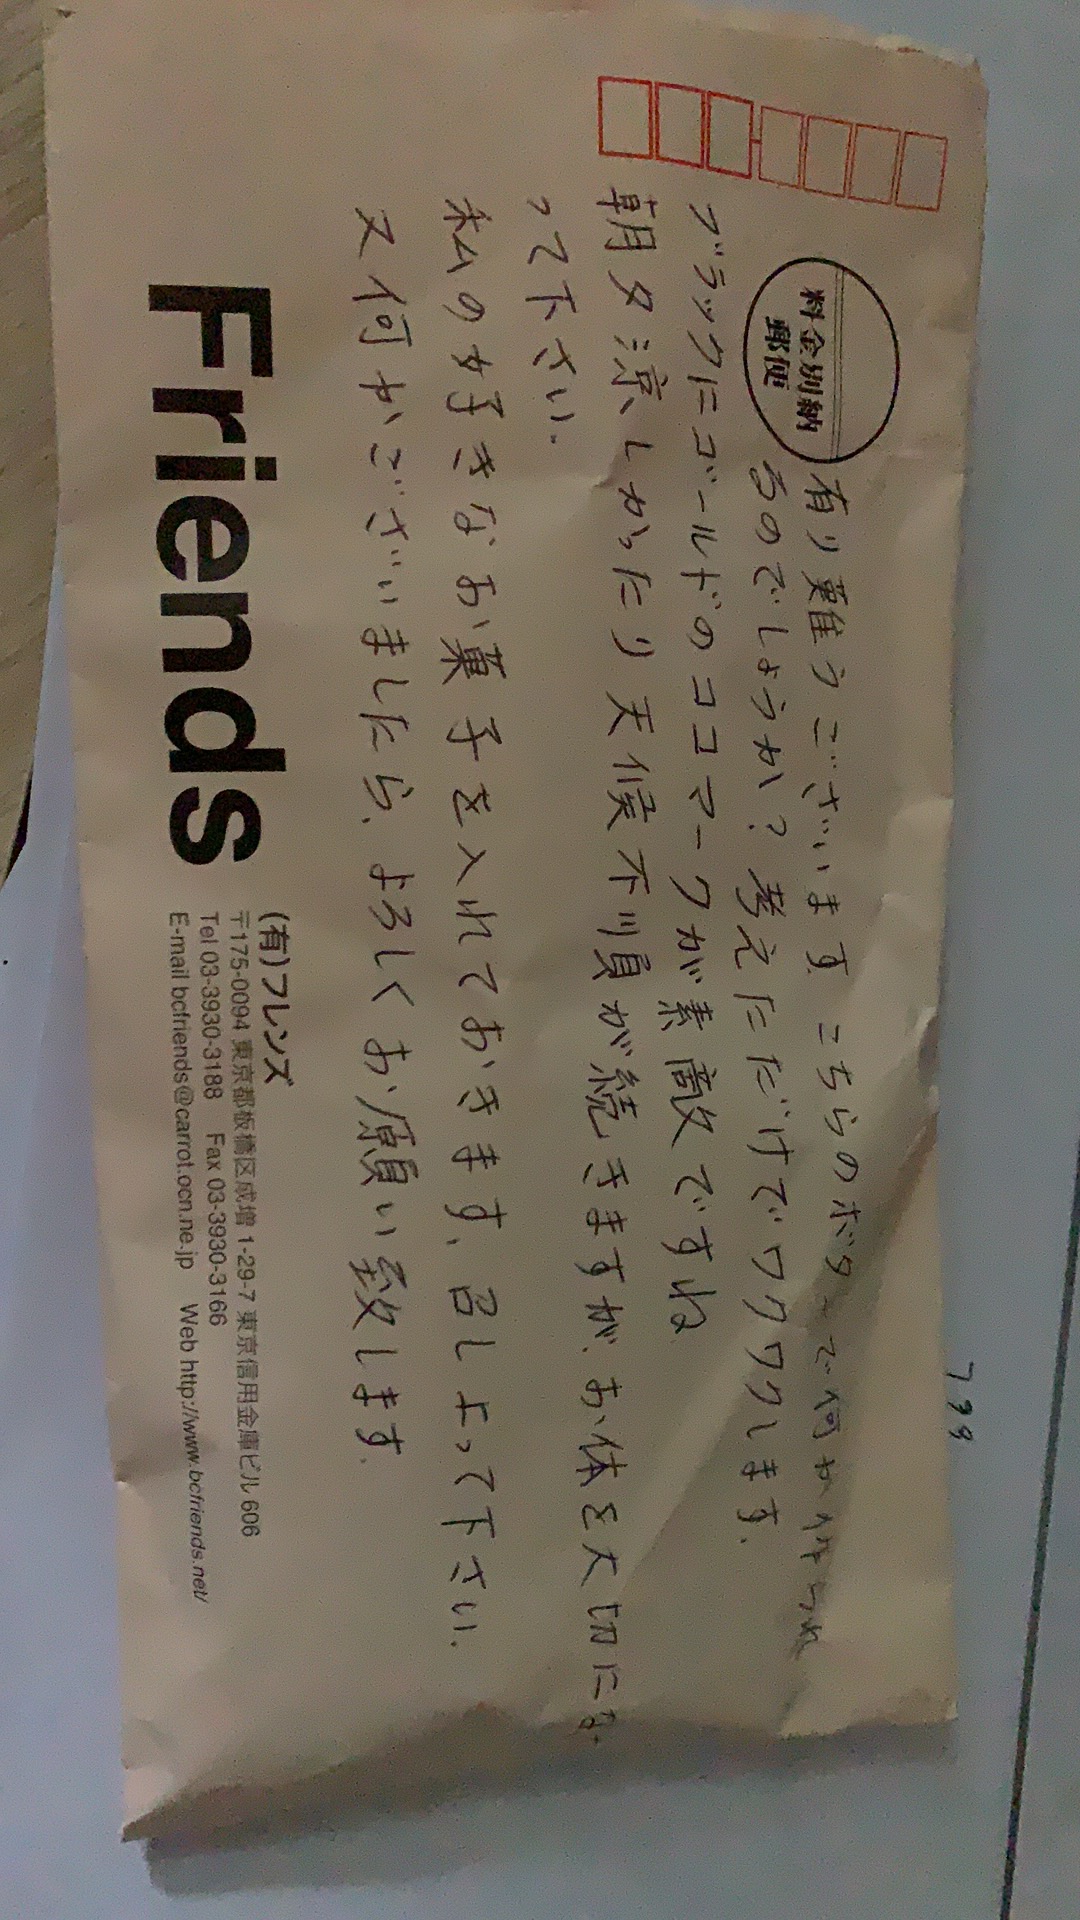 料金別納
郵便
有り難うございます。こちらのボタンで何か作られ
るのでしょうか？考えただけでワクワクします。
ブラックにゴールドのココマークが素敵ですね
朝夕涼しかったり天候不順が続きますが、お体を大切にな
って下さい。
私の好きなお菓子を入れておきます。召しよって下さい。
又何かございましたら、よろしくお願い致します。
Friends
(有)フレンズ
〒175-0094 東京都板橋区成増 1-29-7 東京信用金庫ビル 606
Tel 03-3930-3188 Fax 03-3930-3166
E-mail bcfriends@carrot.ocn.ne.jp Web http://www.bcfriends.net/